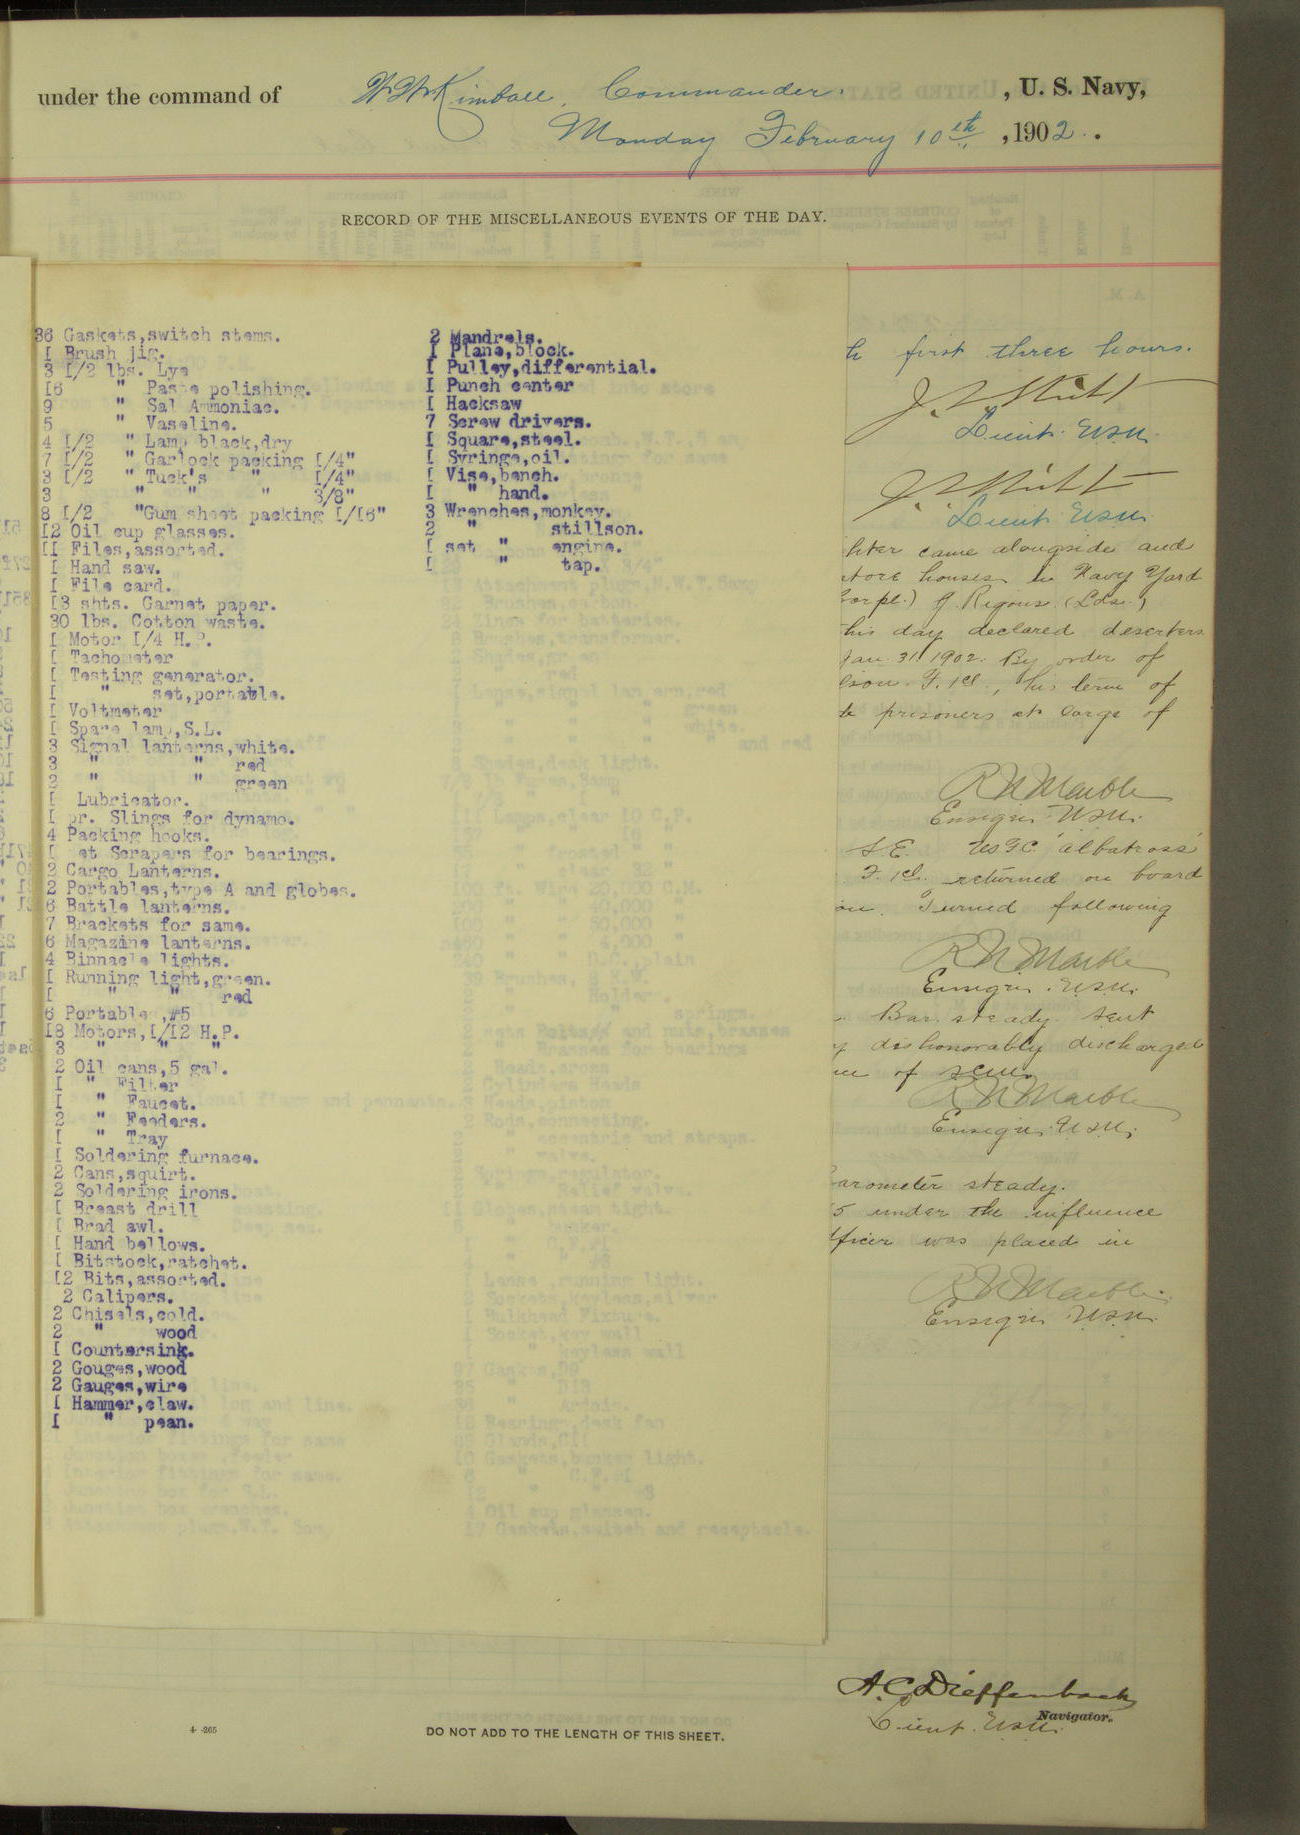 under the command of W W Kimball, Commander. , U. S. Navy,
Monday February 10th , 1902.
RECORD OF THE MISCELLANEOUS EVENTS OF THE DAY.
36 Gaskets,switch stems.
[ Brush jig.
3 [/2 lbs. Lye
[6 " Paste polishing.
9 " Sal Ammoniac.
5 " Vaseline.
4 [/2 " Lamp black,dry
7 [/2 " Garlock packing [/4"
3 [/2 " Tuck's " [/4"
3 " " " 3/8"
8 [/2 "Gum sheet packing [/[6"
[2 Oil cup glasses.
[[ Files,assorted.
[ Hand saw.
[ File card.
[3 shts. Garnet paper.
30 lbs. Cotton waste.
[ Motor [/4 H.P.
[ Tachometer
[ Testing generator.
[ " set,portable.
[ Voltmeter
[ Spare lamp,S.L.
3 Signal lanterns,white.
3 " " red
2 " " green
[ Lubricator.
[ pr. Slings for dynamo.
4 Packing hooks.
[ et Scrapers for bearings.
2 Cargo Lanterns.
2 Portables,type A and globes.
6 Battle lanterns.
7 Brackets for same.
6 Magazine lanterns.
4 Binnacle lights.
[ Running light,green.
[ " " red
6 Portable ,#5
[8 Motors,[/[2 H.P.
3 " " "
2 Oil cans,5 gal.
[ " Filter
[ " Faucet.
2 " Feeders.
[ " Tray
[ Soldering furnace.
2 Cans,squirt.
2 Soldering irons.
[ Breast drill
[ Brad awl.
[ Hand bellows.
[ Bitstock,ratchet.
[2 Bits,assorted.
2 Calipers.
2 Chisels,cold.
2 " wood
[ Countersink.
2 Gouges,wood
2 Gauges,wire
[ Hammer,claw.
[ " pean.
2 Mandrels.
[ Plane,block.
[ Pulley,differential.
[ Punch center
[ Hacksaw
7 Screw drivers.
[ Square,steel.
[ Syringe,oil.
[ Vise,bench.
[ " hand.
3 Wrenches,monkey.
2 " stillson.
[ set " engine.
[ " tap.
h first three hours.
Lieut. USN.
Lieut. USN.
hter came alongside and
store houses in Navy Yard
Corpl.) G. Rigous (Lds.)
this day declared deserters
Jan. 31 1902. By order of
lson F. 1cl., his term of
te prisoners at large of
R N Marble
Ensign USN.
S.E. USFC 'Albatross'
F. 1cl. returned on board
on. Turned following
R N Marble
Ensign USN.
Bar. steady. Sent
y dishonorably discharged
me of
R N Marble
Ensign USN.
Barometer steady.
5 under the influence
fficer was placed in
R N Marble.
Ensign USN.
A.C. Dieffenbach
Lieut. USN. Navigator.
4-265
DO NOT ADD TO THE LENGTH OF THIS SHEET.